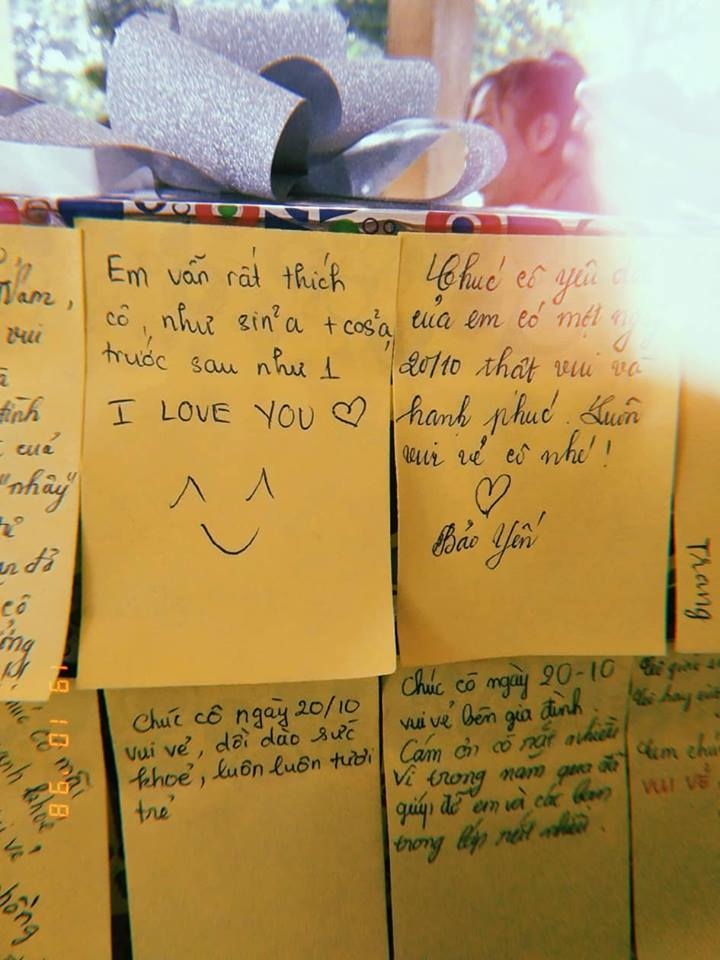 Nam,
vui
đình
cuả
"nhây"
cô
Em vẫn rất thích
cô, như sin²a + cos²a,
trước sau như 1
I LOVE YOU ♡
Chúc cô yêu
của em có một
20/10 thật vui và
hạnh phúc. Luôn
vui vẻ cô nhé!
♡
Bảo Yến
Trang
Chúc cô ngày 20/10
vui vẻ, dồi dào sức
khoẻ, luôn luôn tươi
trẻ
Chúc cô ngày 20-10
vui vẻ bên gia đình.
Cám ơn cô rất nhiều
vì trong năm qua đã
giúp đỡ em và các bạn
trong lớp rất nhiều.
vui vẻ
19 10 '98